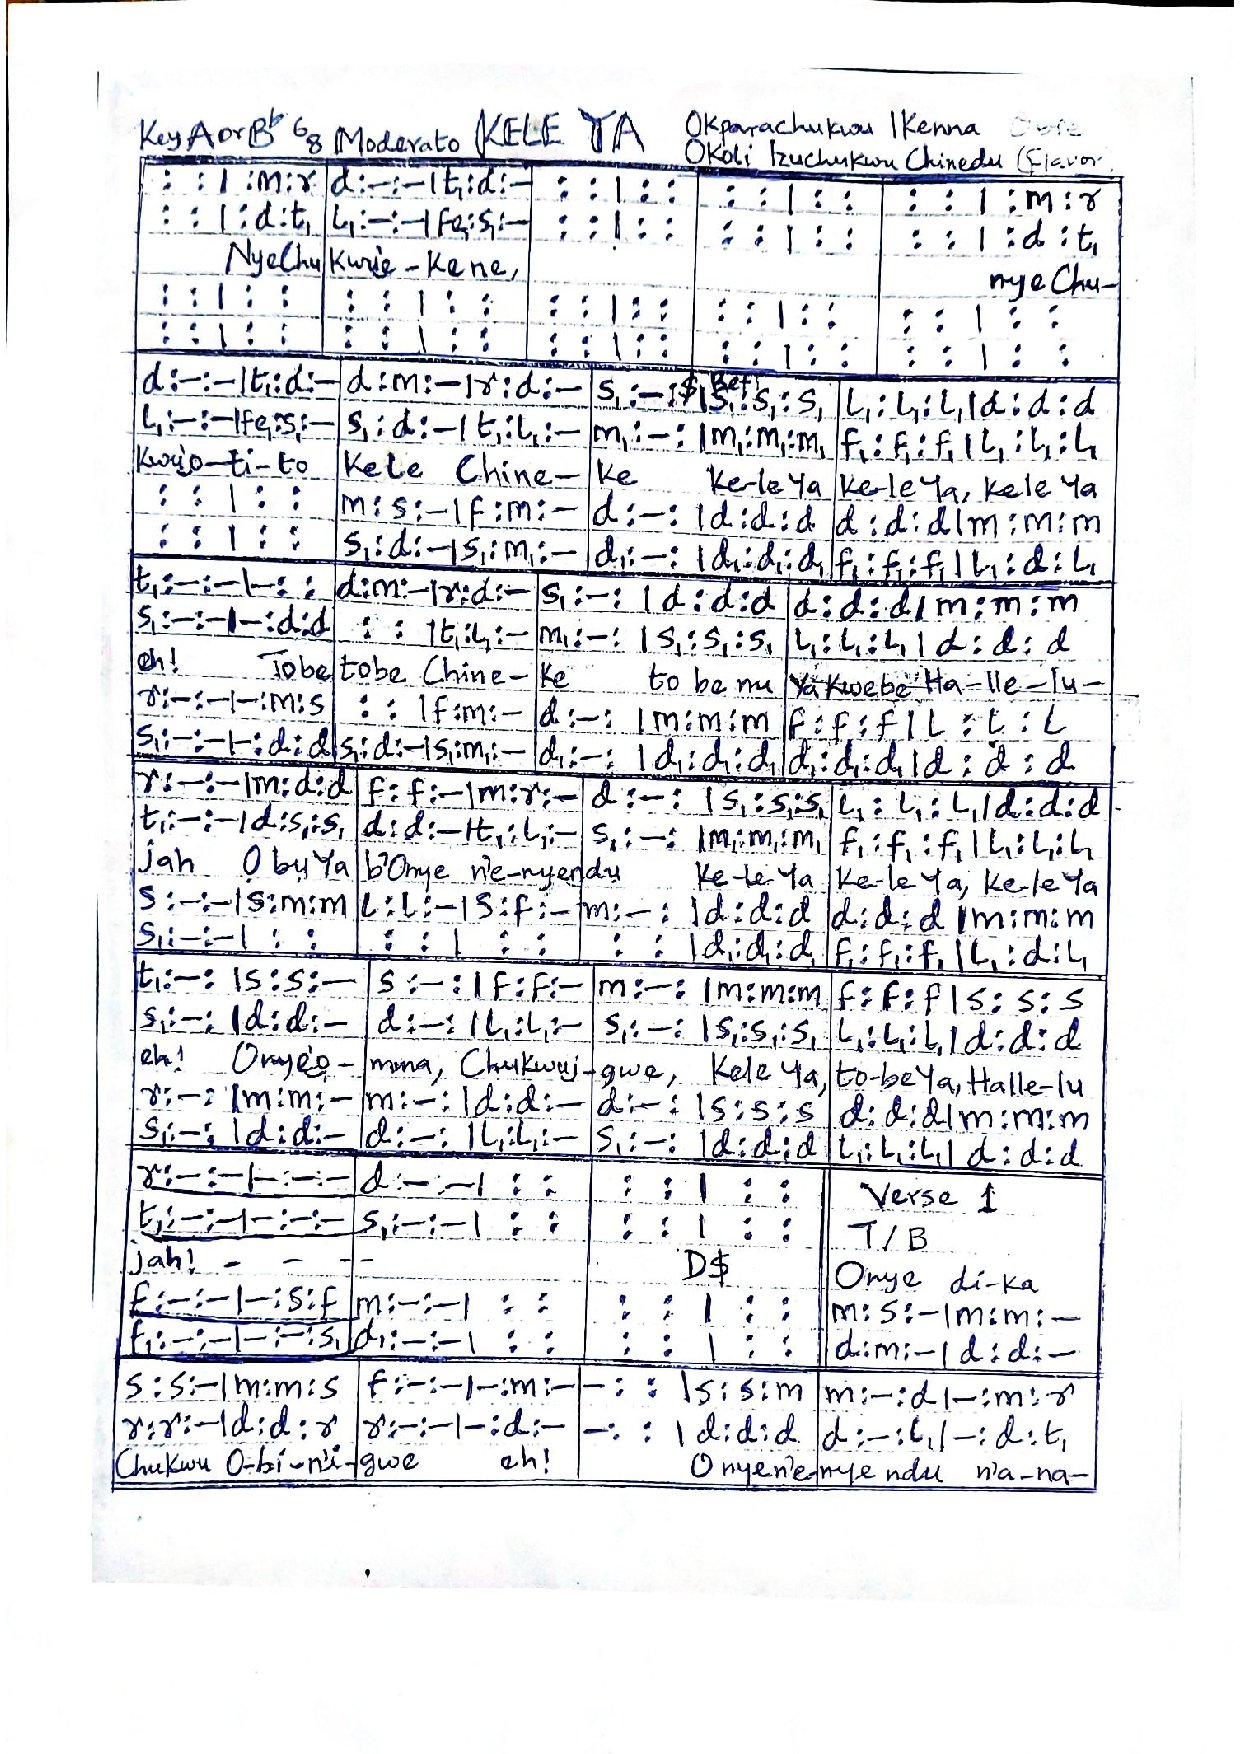 Key A or Bb 6/8 Moderato KELE YA Okparachukwu Ikenna
Okoli Izuchukwu Chinedu (Flavor)
: : | : m : r | d : – : – | t₁ : d : – | : : | : : | : : | : : | : : | : m : r
: : | : d : t₁ | L₁ : – : – | fe₁ : s₁ : – | : : | : : | : : | : : | : : | : d : t₁
NyeChu kwu'e – kene, nyeChu–
: : | : : | : : | : : | : : | : : | : : | : : | : : | : :
: : | : : | : : | : : | : : | : : | : : | : : | : : | : :
d : – : – | t₁ : d : – | d : m : – | r : d : – | s₁ : – : $ Bef: | s₁ : s₁ : s₁ | L₁ : L₁ : L₁ | d : d : d
L₁ : – : – | fe₁ : s₁ : – | s₁ : d : – | t₁ : L₁ : – | m₁ : – : | m₁ : m₁ : m₁ | f₁ : f₁ : f₁ | L₁ : L₁ : L₁
kwu'o–ti–to kele Chine– ke ke–le Ya ke–le Ya, kele Ya
: : | : : | m : s : – | f : m : – | d : – : | d : d : d | d : d : d | m : m : m
: : | : : | s₁ : d : – | s₁ : m₁ : – | d₁ : – : | d₁ : d₁ : d₁ | f₁ : f₁ : f₁ | L₁ : d : L₁
t₁ : – : – | – : : | d : m : – | r : d : – | s₁ : – : | d : d : d | d : d : d | m : m : m
s₁ : – : – | – : d : d | : : | t₁ : L₁ : – | m₁ : – : | s₁ : s₁ : s₁ | L₁ : L₁ : L₁ | d : d : d
eh! Tobe tobe Chine– ke to be nu Ya kwebe Ha–lle–lu–
r : – : – | – : m : s | : : | f : m : – | d : – : | m : m : m | f : f : f | L : L : L
s₁ : – : – | – : d : d | s₁ : d : – | s₁ : m₁ : – | d₁ : – : | d₁ : d₁ : d₁ | d₁ : d₁ : d₁ | d : d : d
r : – : – | m : d : d | f : f : – | m : r : – | d : – : | s₁ : s₁ : s₁ | L₁ : L₁ : L₁ | d : d : d
t₁ : – : – | d : s₁ : s₁ | d : d : – | t₁ : L₁ : – | s₁ : – : | m₁ : m₁ : m₁ | f₁ : f₁ : f₁ | L₁ : L₁ : L₁
jah O bụ Ya b'Onye n'e–nyendu ke–le Ya ke–le Ya, ke–le Ya
s : – : – | s : m : m | L : L : – | s : f : – | m : – : | d : d : d | d : d : d | m : m : m
s₁ : – : – | : : | : : | : : | : : | d₁ : d₁ : d₁ | f₁ : f₁ : f₁ | L₁ : d : L₁
t₁ : – : | s : s : – | s : – : | f : f : – | m : – : | m : m : m | f : f : f | s : s : s
s₁ : – : | d : d : – | d : – : | L₁ : L₁ : – | s₁ : – : | s₁ : s₁ : s₁ | L₁ : L₁ : L₁ | d : d : d
eh! Onye'ọ– mma, Chukwuị–gwe, kele Ya, to–be Ya, Halle–lu
r : – : | m : m : – | m : – : | d : d : – | d : – : | s : s : s | d : d : d | m : m : m
s₁ : – : | d : d : – | d : – : | L₁ : L₁ : – | s₁ : – : | d : d : d | L₁ : L₁ : L₁ | d : d : d
r : – : – | – : – : – | d : – : – | : : | : : | : : | Verse 1
t₁ : – : – | – : – : – | s₁ : – : – | : : | : : | : : | T/B
jah! – – – – D$ Onye di–ka
f : – : – | – : s : f | m : – : – | : : | : : | : : | m : s : – | m : m : –
f₁ : – : – | – : – : s₁ | d₁ : – : – | : : | : : | : : | d : m : – | d : d : –
s : s : – | m : m : s | f : – : – | – : m : – | – : : | s : s : m | m : – : d | – : m : r
r : r : – | d : d : r | r : – : – | – : d : – | – : : | d : d : d | d : – : L₁ | – : d : t₁
Chukwu O–bi–n'i–gwe eh! Onyen'e–nye ndu n'a–na–